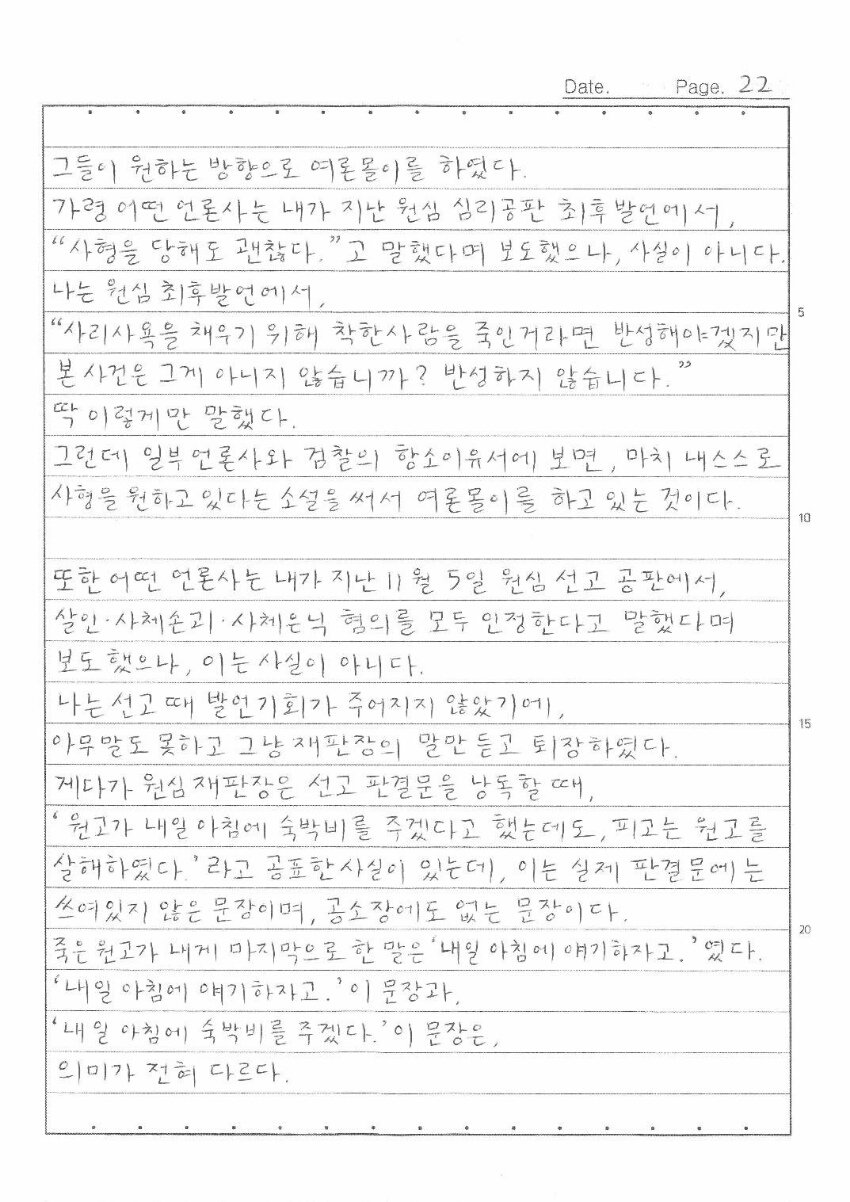 Date. Page. 22
그들이 원하는 방향으로 여론몰이를 하였다.
가령 어떤 언론사는 내가 지난 원심 심리공판 최후발언에서,
“사형을 당해도 괜찮다.”고 말했다며 보도했으나, 사실이 아니다.
나는 원심 최후발언에서,
5
“사리사욕을 채우기 위해 착한사람을 죽인거라면 반성해야겠지만
본 사건은 그게 아니지 않습니까? 반성하지 않습니다.”
딱 이렇게만 말했다.
그런데 일부 언론사와 검찰의 항소이유서에 보면, 마치 내스스로
사형을 원하고 있다는 소설을 써서 여론몰이를 하고 있는 것이다.
10
또한 어떤 언론사는 내가 지난 11월 5일 원심 선고 공판에서,
살인·사체손괴·사체은닉 혐의를 모두 인정한다고 말했다며
보도했으나, 이는 사실이 아니다.
나는 선고 때 발언기회가 주어지지 않았기에,
15
아무말도 못하고 그냥 재판장의 말만 듣고 퇴장하였다.
게다가 원심 재판장은 선고 판결문을 낭독할 때,
‘원고가 내일 아침에 숙박비를 주겠다고 했는데도, 피고는 원고를
살해하였다.’라고 공표한 사실이 있는데, 이는 실제 판결문에는
쓰여있지 않은 문장이며, 공소장에도 없는 문장이다.
20
죽은 원고가 내게 마지막으로 한 말은 ‘내일 아침에 얘기하자고.’였다.
‘내일 아침에 얘기하자고.’이 문장과,
‘내일 아침에 숙박비를 주겠다.’이 문장은,
의미가 전혀 다르다.